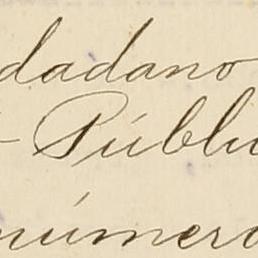 dadano
- Públi
número